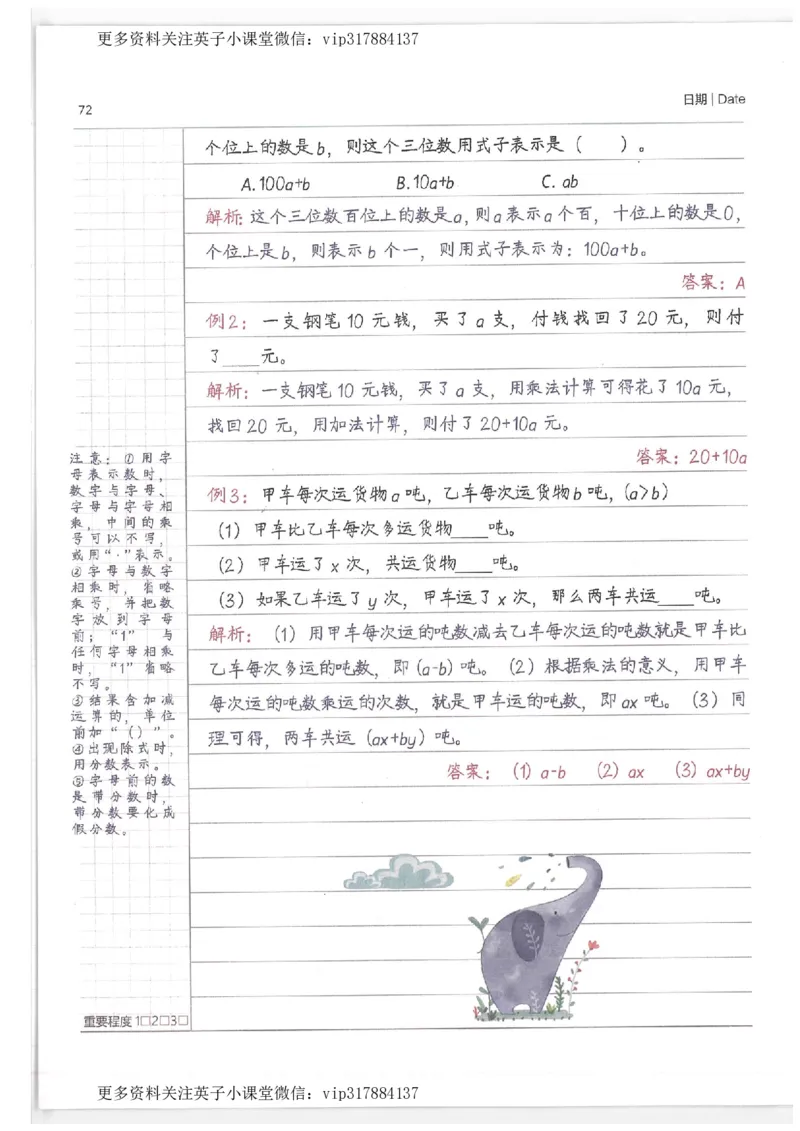 更多资料关注英子小课堂微信：vip317884137
72
日期 | Date
个位上的数是b，则这个三位数用式子表示是（ ）。
A.100a+b B.10a+b C. ab
解析：这个三位数百位上的数是a，则a表示a个百，十位上的数是0，
个位上是b，则表示b个一，则用式子表示为：100a+b。
答案：A
例2：一支钢笔10元钱，买了a支，付钱找回了20元，则付
了____元。
解析：一支钢笔10元钱，买了a支，用乘法计算可得花了10a元，
找回20元，用加法计算，则付了20+10a元。
答案：20+10a
例3：甲车每次运货物a吨，乙车每次运货物b吨，(a>b）
（1）甲车比乙车每次多运货物____吨。
（2）甲车运了x次，共运货物____吨。
（3）如果乙车运了y次，甲车运了x次，那么两车共运____吨。
解析：（1）用甲车每次运的吨数减去乙车每次运的吨数就是甲车比
乙车每次多运的吨数，即(a-b)吨。（2）根据乘法的意义，用甲车
每次运的吨数乘运的次数，就是甲车运的吨数，即ax吨。（3）同
理可得，两车共运（ax+by）吨。
答案：（1）a-b （2）ax （3）ax+by
注意：①用字
母表示数时，
数字与字母、
字母与字母相
乘，中间的乘
号可以不写，
或用“·”表示。
②字母与数字
相乘时，省略
乘号，并把数
字放到字母
前；“1”与
任何字母相乘
时，“1”省略
不写。
③结果含加减
运算的，单位
前加“（）”。
④出现除式时，
用分数表示。
⑤字母前的数
是带分数时，
带分数要化成
假分数。
重要程度 1□2□3□
更多资料关注英子小课堂微信：vip317884137